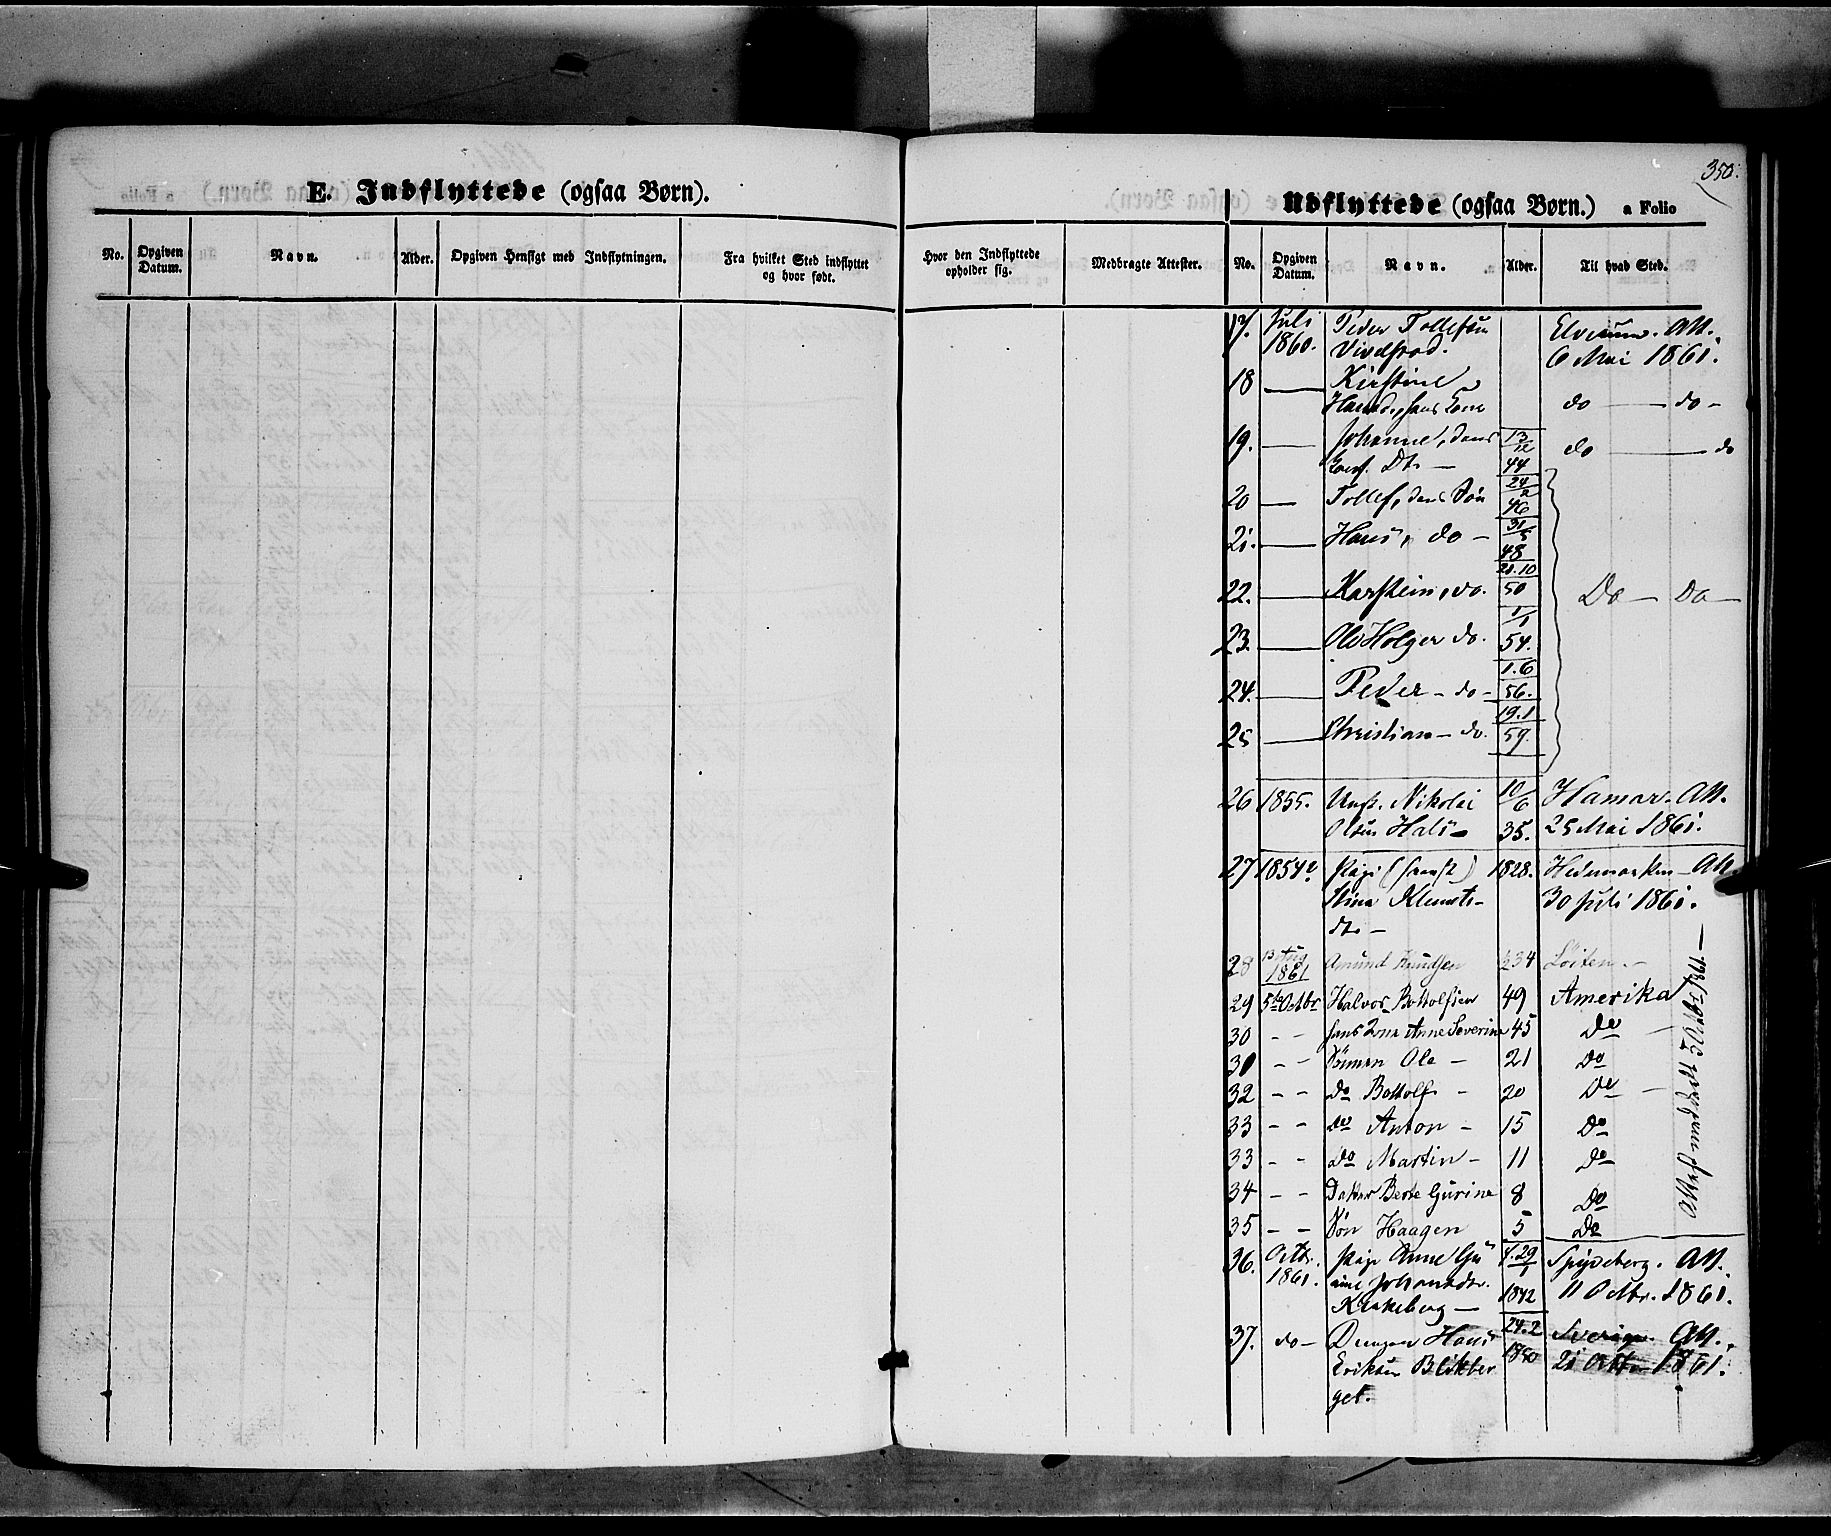 350.
E. Indflyttede (ogsaa Børn).
No.
Opgiven Datum.
Navn.
Alder.
Opgiven Hensigt med Indflytningen.
Fra hvilket Sted indflyttet
og hvor født.
Hvor den Indflyttede
opholder sig.
Medbragte Attester.
Udflyttede (ogsaa Børn.) a Folio
No.
Opgiven Datum.
Navn.
Alder.
Til hvad Sted.
17. Juli Peder Tollefsen Elverum. Att.
1860. 6 Mai 1861.
18 — Kirstine
Hansdr, hans Kone do — do -
19. — Johanne, dans 13/12 do — do
Dtr — 44
20 — Tollef, dans Søn 24/2 46
21. — Hans, do — 31/5 48
22. — Karstein, do. 21.10 50 Do — Do —
23. — Ole Holger do. 1/1 54.
24. — Peder - do - 1.6 56.
25 — Christian - do. 19.1 59.
26 1855. Ungk. Nikolai 10/6 Hamar. Att.
Olsen Hals 35. 25 Mai 1861.
27 1854 Pige (svensk) 1828. Hedemarken - Att.
Stina Klemets- 30 Juli 1861.
dtr —
28 13 Aug Amund Knudsen 34 Løiten. -
1861
29 5te Octbr Halvor Bottolfsen 49 Amerika
30 - - hans Kone Anne Severine 45 Do
31 - - Sønnen Ole - 21 Do
32 - - Do Bottolf - 20 Do
33 - - Do Anton - 15 Do
33 - - Do Martin - 11 Do
34 - - Datter Berte Gurine 8 Do
35 - - Søn Haagen 5 Do
Attest meddeelt 5 Octbr 1861 —
36. Octr. Pige Anne Gu f. 29/1 Spydeberg. Att.
1861. rine Johansdr. 1842 11 Octbr. 1861.
Krakeberg —
37. do - Drengen Hans 24.2 Sverige. Att.
Eriksen Blikber 1850 21 Octbr 1861.
get.